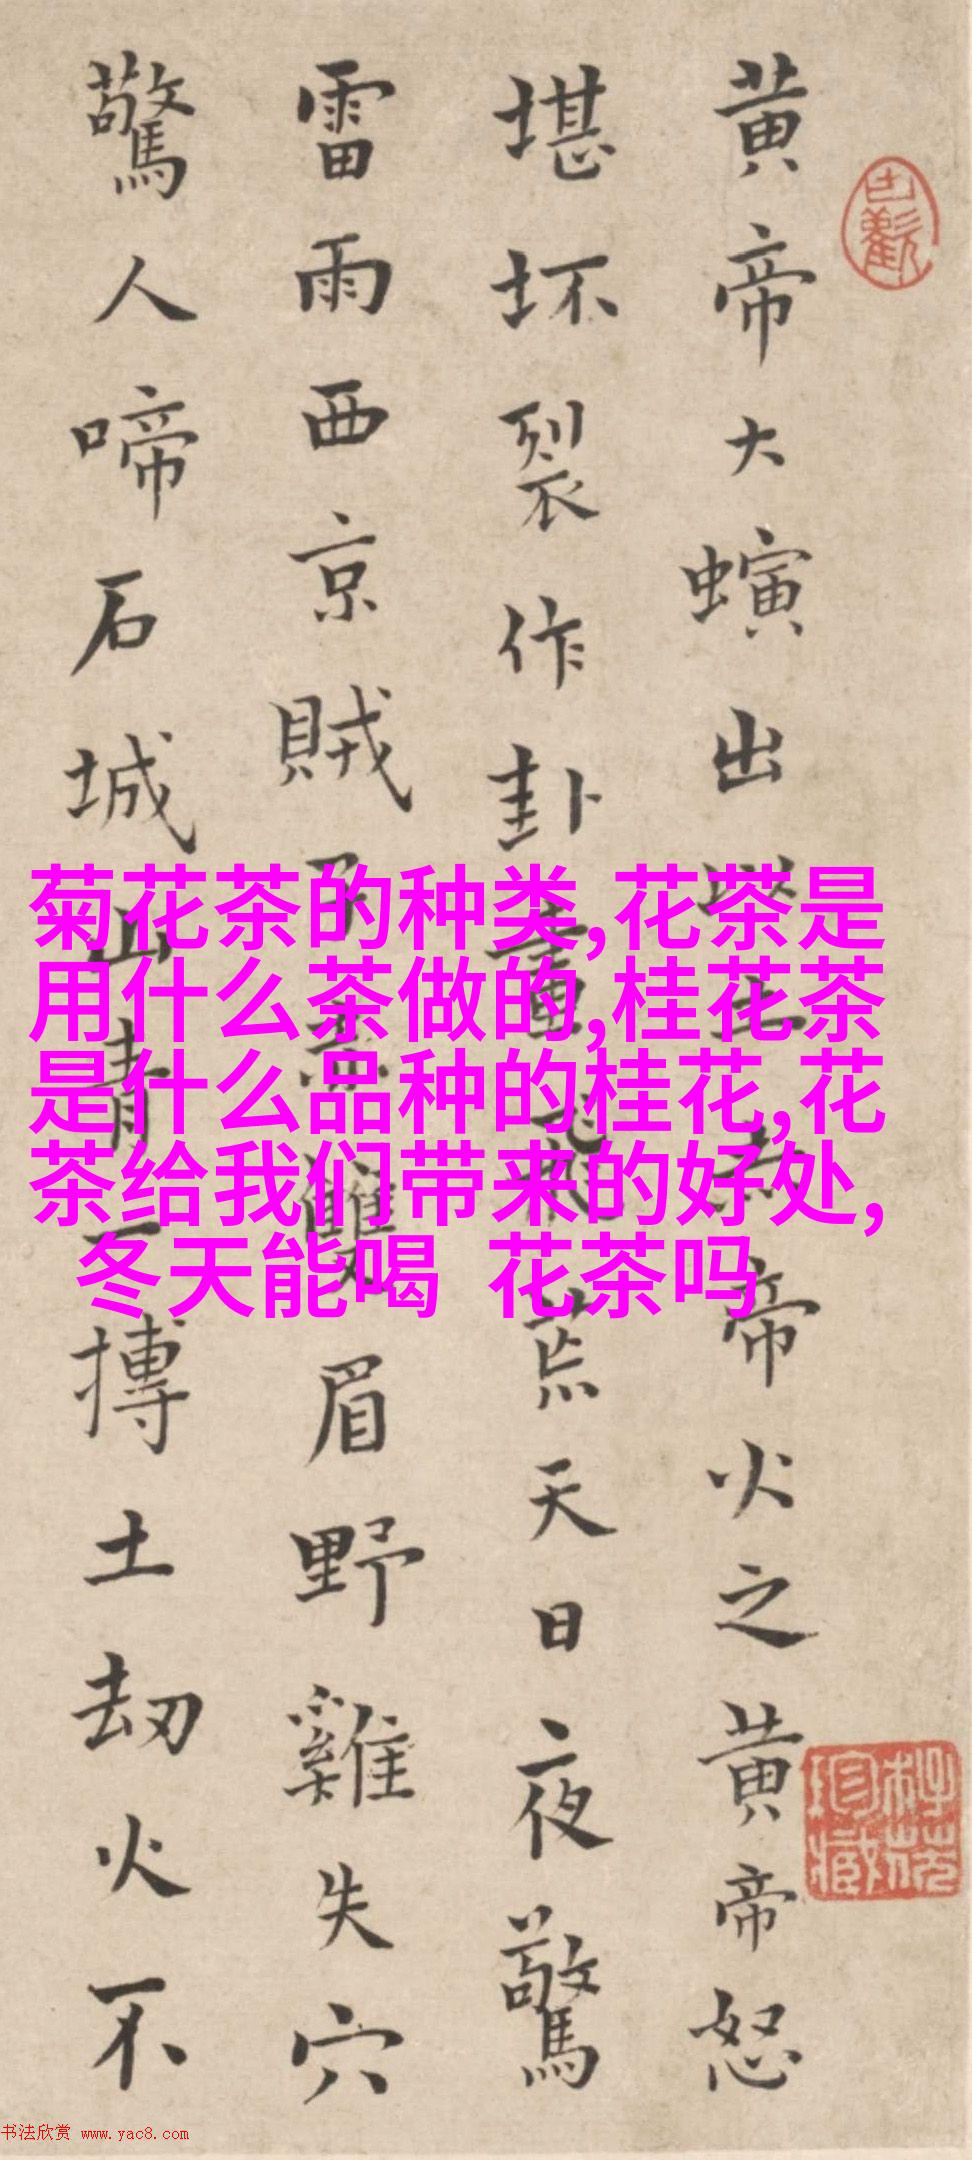 黃帝大螾出土帝火之黃帝怒
堪坏裂作卦荒天日夜驚
雷雨西京賊子雙眉野雞失穴
驚人啼石城山青一摶土劫火不
菊花茶的种类,花茶是
用什么茶做的,桂花茶
是什么品种的桂花,花
茶给我们带来的好处,
冬天能喝 花茶吗
书法欣赏 www.yac8.com